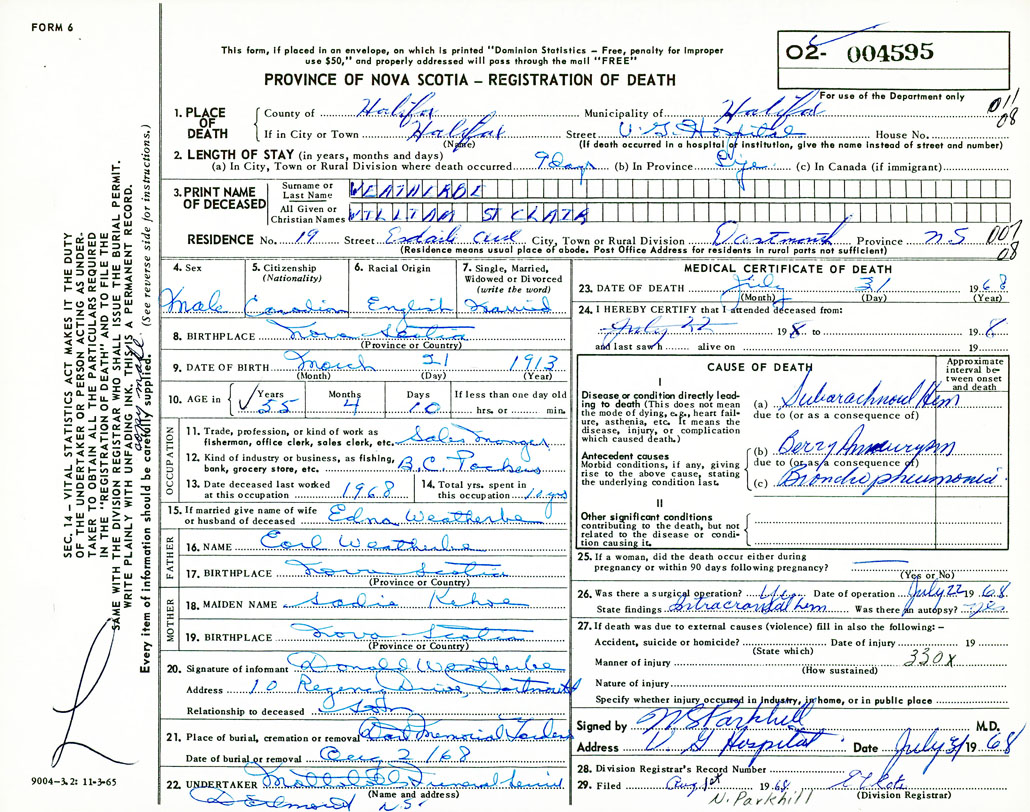 FORM 6
This form, if placed in an envelope, on which is printed "Dominion Statistics – Free, penalty for improper
use $50," and properly addressed will pass through the mail "FREE"
PROVINCE OF NOVA SCOTIA – REGISTRATION OF DEATH
O2- 004595
For use of the Department only
011
08
1. PLACE OF DEATH
County of Halifax Municipality of Halifax
If in City or Town Halifax Street V.G. Hospital House No.
(Name) (If death occurred in a hospital or institution, give the name instead of street and number)
2. LENGTH OF STAY (in years, months and days)
(a) In City, Town or Rural Division where death occurred 9 days (b) In Province (c) In Canada (if immigrant)
3. PRINT NAME OF DECEASED
Surname or Last Name WEATHERBE
All Given or Christian Names WILLIAM ST CLAIR
RESIDENCE No. 19 Street City, Town or Rural Division Dartmouth Province N.S
(Residence means usual place of abode. Post Office Address for residents in rural parts not sufficient)
007
08
4. Sex
Male
5. Citizenship (Nationality)
Canadian
6. Racial Origin
English
7. Single, Married, Widowed or Divorced (write the word)
Married
8. BIRTHPLACE Nova Scotia
(Province or Country)
9. DATE OF BIRTH March 21 1913
(Month) (Day) (Year)
10. AGE in Years 55 Months 4 Days 10 If less than one day old
hrs. or min.
OCCUPATION
11. Trade, profession, or kind of work as fisherman, office clerk, sales clerk, etc. Sales Manager
12. Kind of industry or business, as fishing, bank, grocery store, etc. B.C. Packers
13. Date deceased last worked at this occupation 1968
14. Total yrs. spent in this occupation 10 yrs
15. If married give name of wife or husband of deceased Edna Weatherbe
FATHER
16. NAME Earl Weatherbe
17. BIRTHPLACE Nova Scotia
(Province or Country)
MOTHER
18. MAIDEN NAME Sadie Kehoe
19. BIRTHPLACE Nova Scotia
(Province or Country)
20. Signature of informant Donald Weatherbe
Address 10 Regency Drive, Dartmouth
Relationship to deceased Son
21. Place of burial, cremation or removal Dart Memorial Gardens
Date of burial or removal Aug 2/68
22. UNDERTAKER
(Name and address)
Dartmouth NS
MEDICAL CERTIFICATE OF DEATH
23. DATE OF DEATH July 31 1968
(Month) (Day) (Year)
24. I HEREBY CERTIFY that I attended deceased from:
July 22 198 to 198
and last saw h alive on 19
CAUSE OF DEATH
Approximate interval between onset and death
I
Disease or condition directly leading to death (This does not mean the mode of dying, e.g., heart failure, asthenia, etc. It means the disease, injury, or complication which caused death.)
(a) Subarachnoid Hem
due to (or as a consequence of)
Antecedent causes
Morbid conditions, if any, giving rise to the above cause, stating the underlying condition last.
(b) Berry Aneurysm
due to (or as a consequence of)
(c) Bronchopneumonia
II
Other significant conditions
contributing to the death, but not related to the disease or condition causing it.
25. If a woman, did the death occur either during pregnancy or within 90 days following pregnancy?
(Yes or No)
26. Was there a surgical operation? Yes Date of operation July 22 1968
State findings Intracranial hem Was there an autopsy? Yes
27. If death was due to external causes (violence) fill in also the following: –
Accident, suicide or homicide? Date of injury 19
(State which)
Manner of injury 330X
(How sustained)
Nature of injury
Specify whether injury occurred in Industry, in home, or in public place
Signed by W S Parkhill M.D.
Address V G Hospital Date July 31 1968
28. Division Registrar's Record Number
29. Filed Aug 1st 1968
W. Parkhill (Division Registrar)
SEC. 14 – VITAL STATISTICS ACT MAKES IT THE DUTY
OF THE UNDERTAKER OR PERSON ACTING AS UNDERTAKER
TO OBTAIN ALL THE PARTICULARS REQUIRED
IN THE "REGISTRATION OF DEATH" AND TO FILE THE
SAME WITH THE DIVISION REGISTRAR WHO SHALL ISSUE THE BURIAL PERMIT.
WRITE PLAINLY WITH UNFADING INK. THIS IS A PERMANENT RECORD.
Every item of information should be carefully supplied. (See reverse side for instructions.)
9004–3.2: 11-3-65